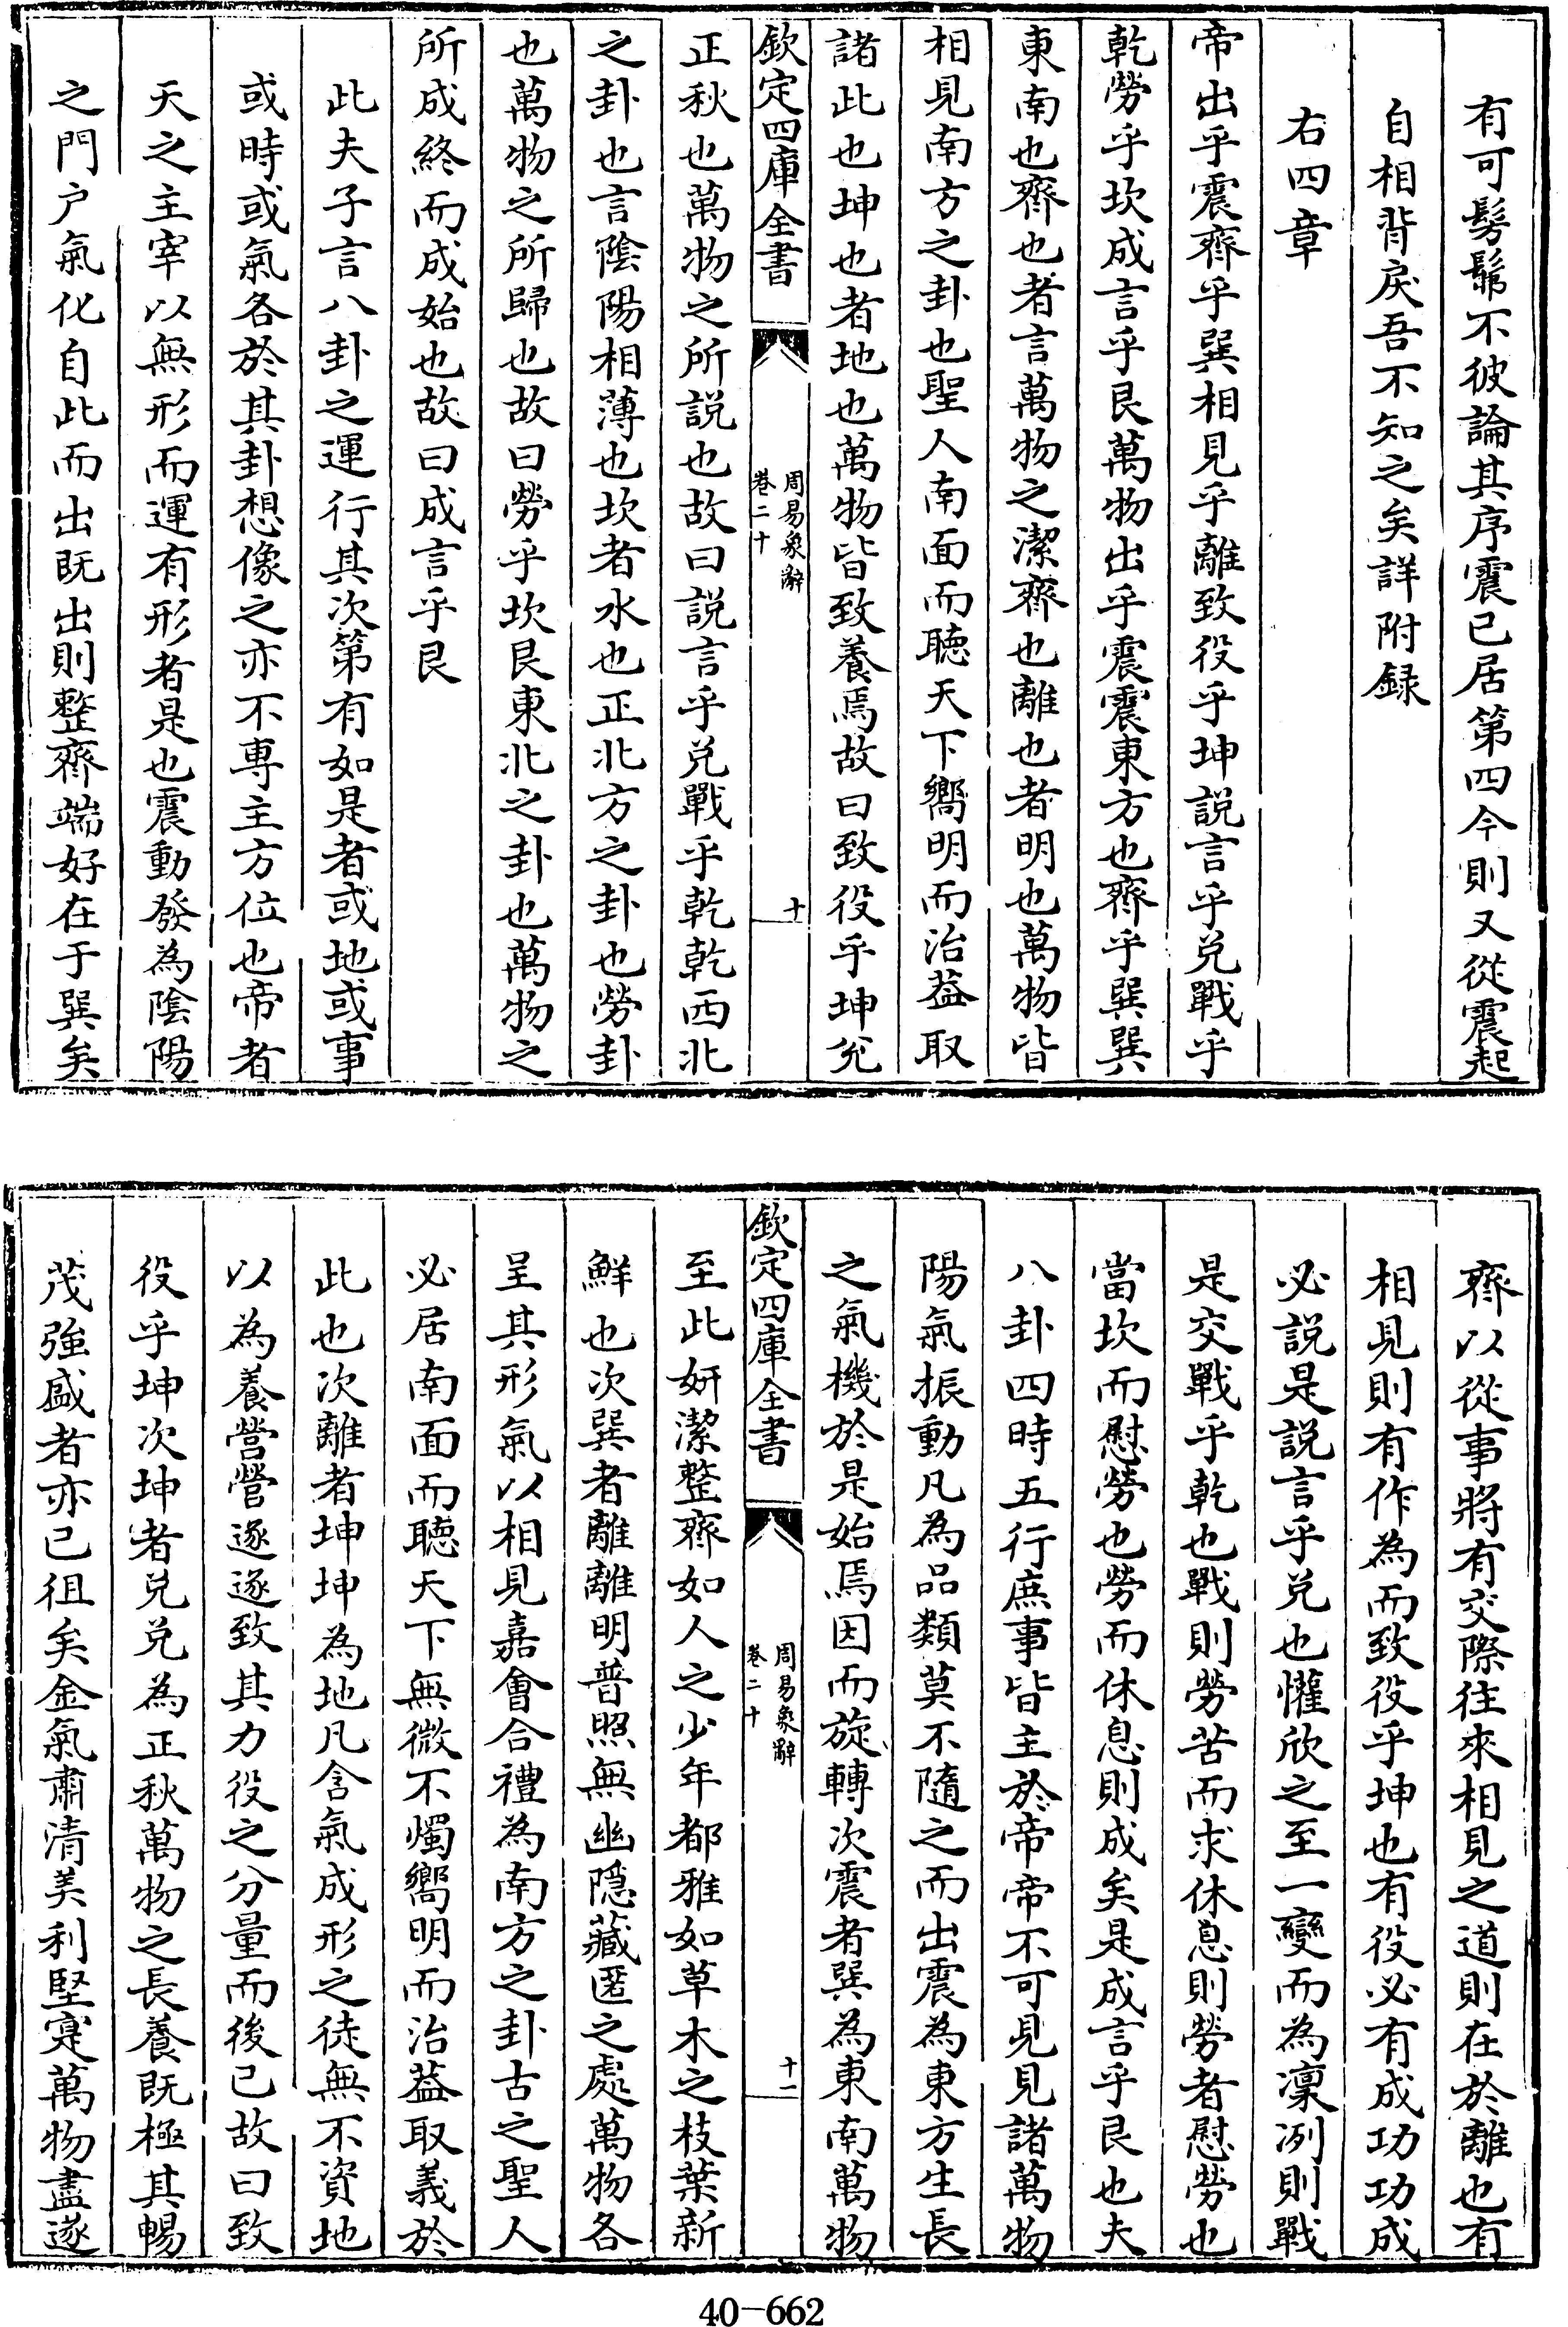 有可髣髴不彼論其序震已居第四今則又從震起
自相背戾吾不知之矣詳附録
右四章
帝出乎震齊乎巽相見乎離致役乎坤説言乎兑戰乎
乾勞乎坎成言乎艮萬物出乎震震東方也齊乎巽巽
東南也齊也者言萬物之潔齊也離也者明也萬物皆
相見南方之卦也聖人南面而聽天下嚮明而治葢取
諸此也坤也者地也萬物皆致養焉故曰致役乎坤兑
欽定四庫全書
周易象辭
卷二十
十
正秋也萬物之所説也故曰説言乎兑戰乎乾乾西北
之卦也言陰陽相薄也坎者水也正北方之卦也勞卦
也萬物之所歸也故曰勞乎坎艮東北之卦也萬物之
所成終而成始也故曰成言乎艮
此夫子言八卦之運行其次第有如是者或地或事
或時或氣各於其卦想像之亦不專主方位也帝者
天之主宰以無形而運有形者是也震動發為陰陽
之門户氣化自此而出既出則整齊端好在于巽矣
齊以從事將有交際往來相見之道則在於離也有
相見則有作為而致役乎坤也有役必有成功功成
必説是説言乎兑也懽欣之至一變而為凜冽則戰
是交戰乎乾也戰則勞苦而求休息則勞者慰勞也
當坎而慰勞也勞而休息則成矣是成言乎艮也夫
八卦四時五行庶事皆主於帝帝不可見見諸萬物
陽氣振動凡為品類莫不隨之而出震為東方生長
之氣機於是始焉因而旋轉次震者巽為東南萬物
欽定四庫全書
周易象辭
卷二十
十一
至此妍潔整齊如人之少年都雅如草木之枝葉新
鮮也次巽者離離明普照無幽隐藏匿之處萬物各
呈其形氣以相見嘉會合禮為南方之卦古之聖人
必居南面而聽天下無微不燭嚮明而治葢取義於
此也次離者坤坤為地凡含氣成形之徒無不資地
以為養營營逐逐致其力役之分量而後已故曰致
役乎坤次坤者兑兑為正秋萬物之長養既極其暢
茂強盛者亦已徂矣金氣肅清美利堅寔萬物盡遂
40-662